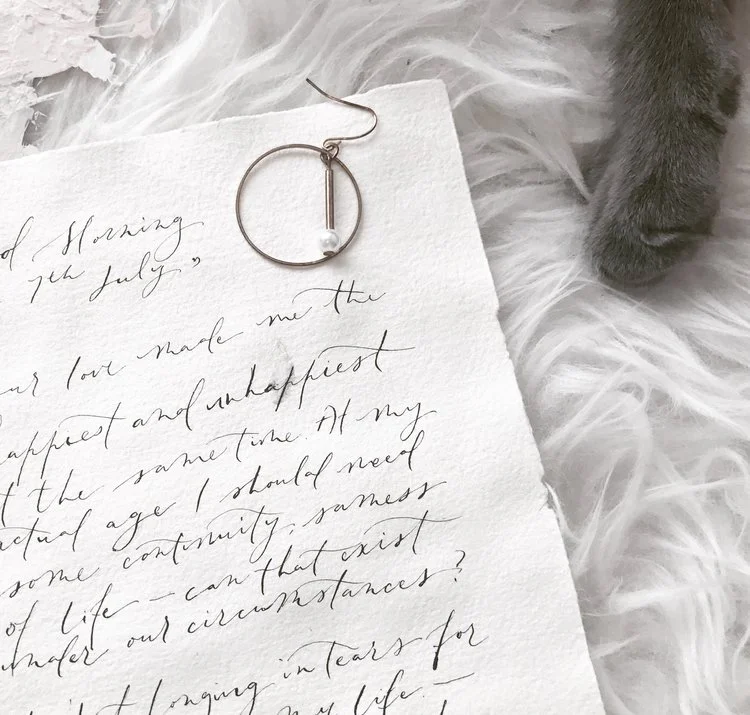 od Morning
7th July,
ur love made me the
appiest and unhappiest
t the same time. At my
ctual age I should need
some continuity, samess
of life — can that exist
under our circumstances?
longing in tears for
my life —